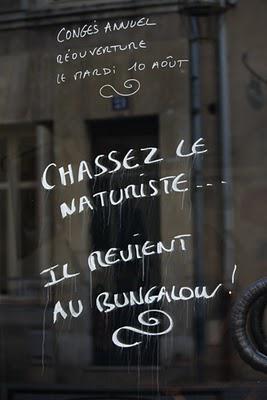 CONGÉS ANNUEL
RÉOUVERTURE
LE MARDI 10 AOÛT
CHASSEZ LE
NATURISTE...
IL REVIENT
AU BUNGALOW !